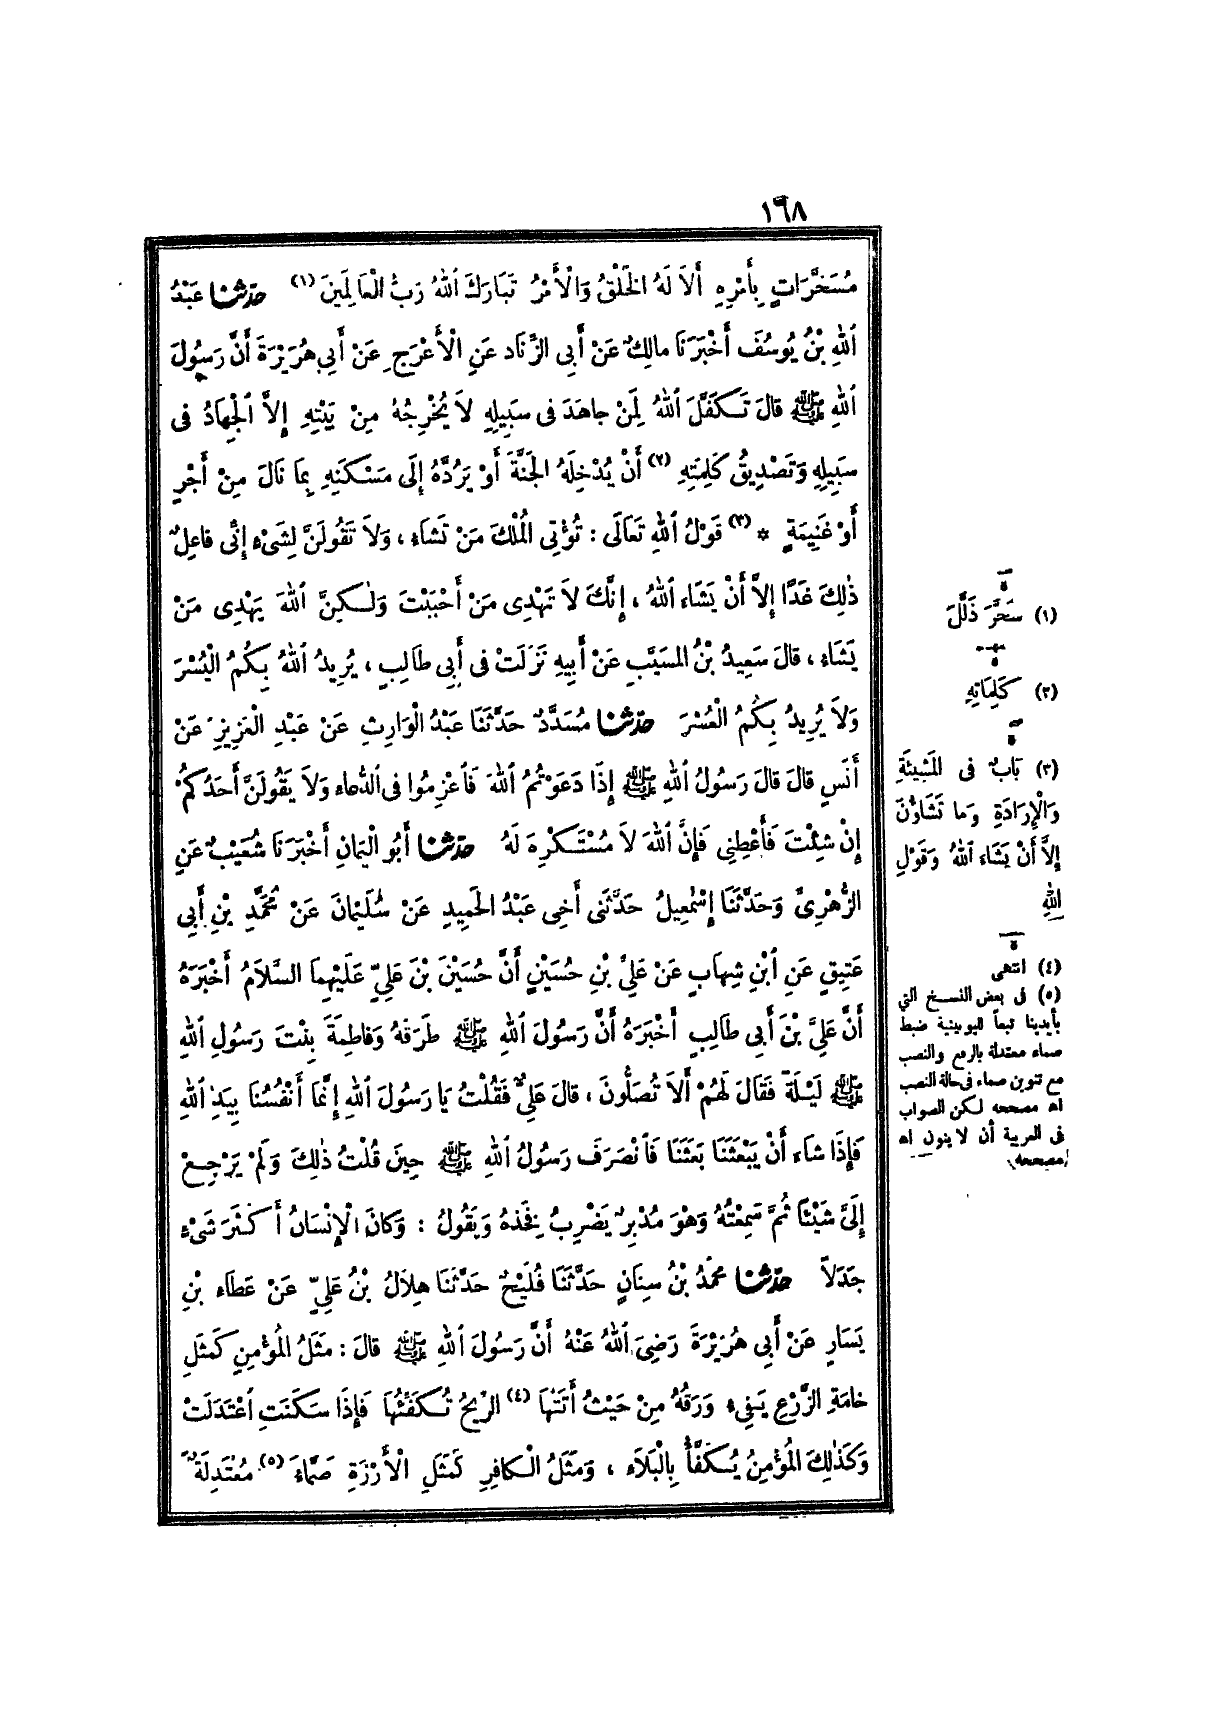 ١٦٨
مُسَخَّرَاتٍ بِأَمْرِهِ أَلاَ لَهُ الخَلْقُ وَالْأَمْرُ تَبَارَكَ اللهُ رَبُّ الْعَالَمِينَ (١) حدّثنا عَبْدُ
اللهِ بْنُ يُوسُفَ أَخْبَرَنَا مالِكٌ عَنْ أَبِى الزِّنَادِ عَنِ الْأَعْرَجِ عَنْ أَبِى هُرَيْرَةَ أَنَّ رَسُولَ
اللهِ ﷺ قالَ تَكَفَّلَ اللهُ لِمَنْ جاهَدَ فى سَبِيلِهِ لاَ يُخْرِجُهُ مِنْ بَيْتِهِ إِلاَّ الْجِهَادُ فى
سَبِيلِهِ وَتَصْدِيقُ كَلِمَتِهِ (٢) أَنْ يُدْخِلَهُ الجَنَّةَ أَوْ يَرُدَّهُ إِلَى مَسْكَنِهِ بِمَا نَالَ مِنْ أَجْرٍ
أَوْ غَنِيمَةٍ * (٣) قَوْلُ اللهِ تَعَالَى : تُؤْتِى المُلْكَ مَنْ تَشَاءُ ، وَلاَ تَقُولَنَّ لِشَىْءٍ إِنِّى فاعِلٌ
ذٰلِكَ غَدًا إِلاَّ أَنْ يَشَاءَ اللهُ ، إِنَّكَ لاَ تَهْدِى مَنْ أَحْبَبْتَ وَلٰكِنَّ اللهَ يَهْدِى مَنْ
يَشَاءُ ، قالَ سَعِيدُ بْنُ المسَيَّبِ عَنْ أَبِيهِ نَزَلَتْ فى أَبِى طَالِبٍ ، يُرِيدُ اللهُ بِكُمُ الْيُسْرَ
وَلاَ يُرِيدُ بِكُمُ الْعُسْرَ حدّثنا مُسَدَّدٌ حَدَّثَنَا عَبْدُ الْوَارِثِ عَنْ عَبْدِ الْعَزِيزِ عَنْ
أَنَسٍ قالَ قالَ رَسُولُ اللهِ ﷺ إِذَا دَعَوْتُمُ اللهَ فَاعْزِمُوا فى الدُّعاءِ وَلاَ يَقُولَنَّ أَحَدُكُمْ
إِنْ شِئْتَ فَأَعْطِنِى فَإِنَّ اللهَ لاَ مُسْتَكْرِهَ لَهُ حدّثنا أَبُو الْيَمانِ أَخْبَرَنَا شُعَيْبٌ عَنِ
الزُّهْرِىِّ وَحَدَّثَنَا إِسْمٰعِيلُ حَدَّثَنى أَخِى عَبْدُ الحَمِيدِ عَنْ سُلَيْمَانَ عَنْ مُحَمَّدِ بْنِ أَبِى
عَتِيقٍ عَنِ ابْنِ شِهَابٍ عَنْ عَلِىِّ بْنِ حُسَيْنٍ أَنَّ حُسَيْنَ بْنَ عَلِىٍّ عَلَيْهِمَا السَّلاَمُ أَخْبَرَهُ
أَنَّ عَلِىَّ بْنَ أَبِى طَالِبٍ أَخْبَرَهُ أَنَّ رَسُولَ اللهِ ﷺ طَرَقَهُ وَفاطِمَةَ بِنْتَ رَسُولِ اللهِ
ﷺ لَيْلَةً فَقَالَ لَهُمْ أَلاَ تُصَلُّونَ ، قالَ عَلِىٌّ فَقُلْتُ يَا رَسُولَ اللهِ إِنَّمَا أَنْفُسُنَا بِيَدِ اللهِ
فَإِذَا شاءَ أَنْ يَبْعَثَنَا بَعَثَنَا فَانْصَرَفَ رَسُولُ اللهِ ﷺ حِينَ قُلْتُ ذٰلِكَ وَلَمْ يَرْجِعْ
إِلَىَّ شَيْئًا ثُمَّ سَمِعْتُهُ وَهْوَ مُدْبِرٌ يَضْرِبُ فَخِذَهُ وَيَقُولُ : وَكانَ الْإِنْسَانُ أَكْثَرَ شَىْءٍ
جَدَلاً حدّثنا مُحَمَّدُ بْنُ سِنَانٍ حَدَّثَنَا فُلَيْحٌ حَدَّثَنَا هِلاَلُ بْنُ عَلِىٍّ عَنْ عَطَاءِ بْنِ
يَسَارٍ عَنْ أَبِى هُرَيْرَةَ رَضِىَ اللهُ عَنْهُ أَنَّ رَسُولَ اللهِ ﷺ قالَ : مَثَلُ المُؤْمِنِ كَمَثَلِ
خامَةِ الزَّرْعِ يَفِىءُ وَرَقُهُ مِنْ حَيْثُ أَتَتْهَا (٤) الرِّيحُ تُكَفِّئُهَا فَإِذَا سَكَنَتِ اعْتَدَلَتْ
وَكَذٰلِكَ المُؤْمِنُ يُكَفَّأُ بِالْبَلاَءِ ، وَمَثَلُ الْكافِرِ كَمَثَلِ الْأَرْزَةِ صَمَّاءَ (٥) مُعْتَدِلَةً
(١) سَخَّرَ ذَلَّلَ
(٢) كَلِمَاتِهِ
(٣) بَابٌ فى المَشِيئَةِ
وَالْإِرَادَةِ وَما تَشَاؤُنَ
إِلاَّ أَنْ يَشَاءَ اللهُ وَقَوْلِ
اللهِ
(٤) انتهى
(٥) فى بعض النسخ التي
بأيدينا تبعاً لليونينية ضبط
صماء معتدلة بالرفع والنصب
مع تنوين صماء فى حالة النصب
اه مصححه لكن الصواب
فى العربية أن لا ينون اه
مصححه